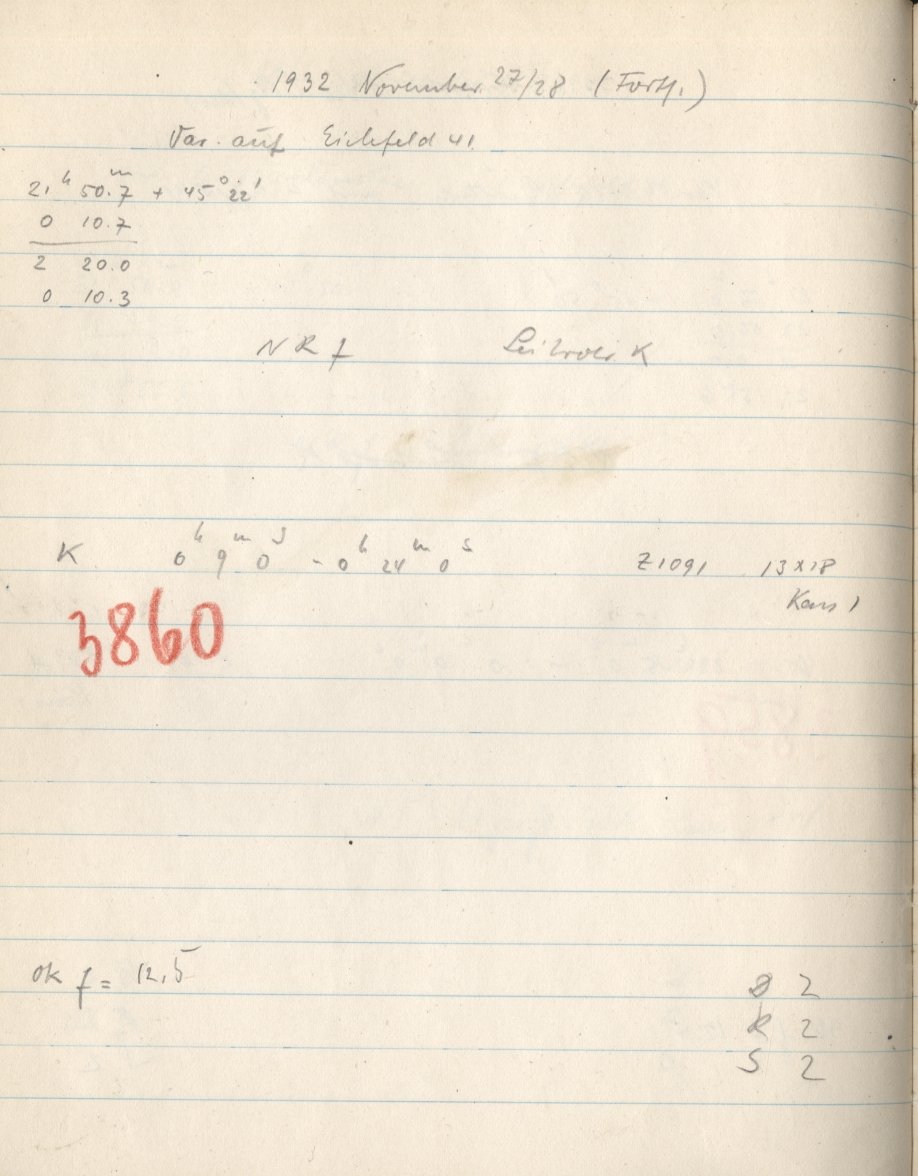 1932 November 27/28 (Forts.)
Var. auf Eichfeld 41.
21 h 50.7 m + 45° 22'
0 10.7
2 20.0
0 10.3
N R f K
K 0 h 9 m 0 s - 0 h 24 m 0 s Z1091 13x18
3860
ok f = 12,5
B 2
R 2
S 2